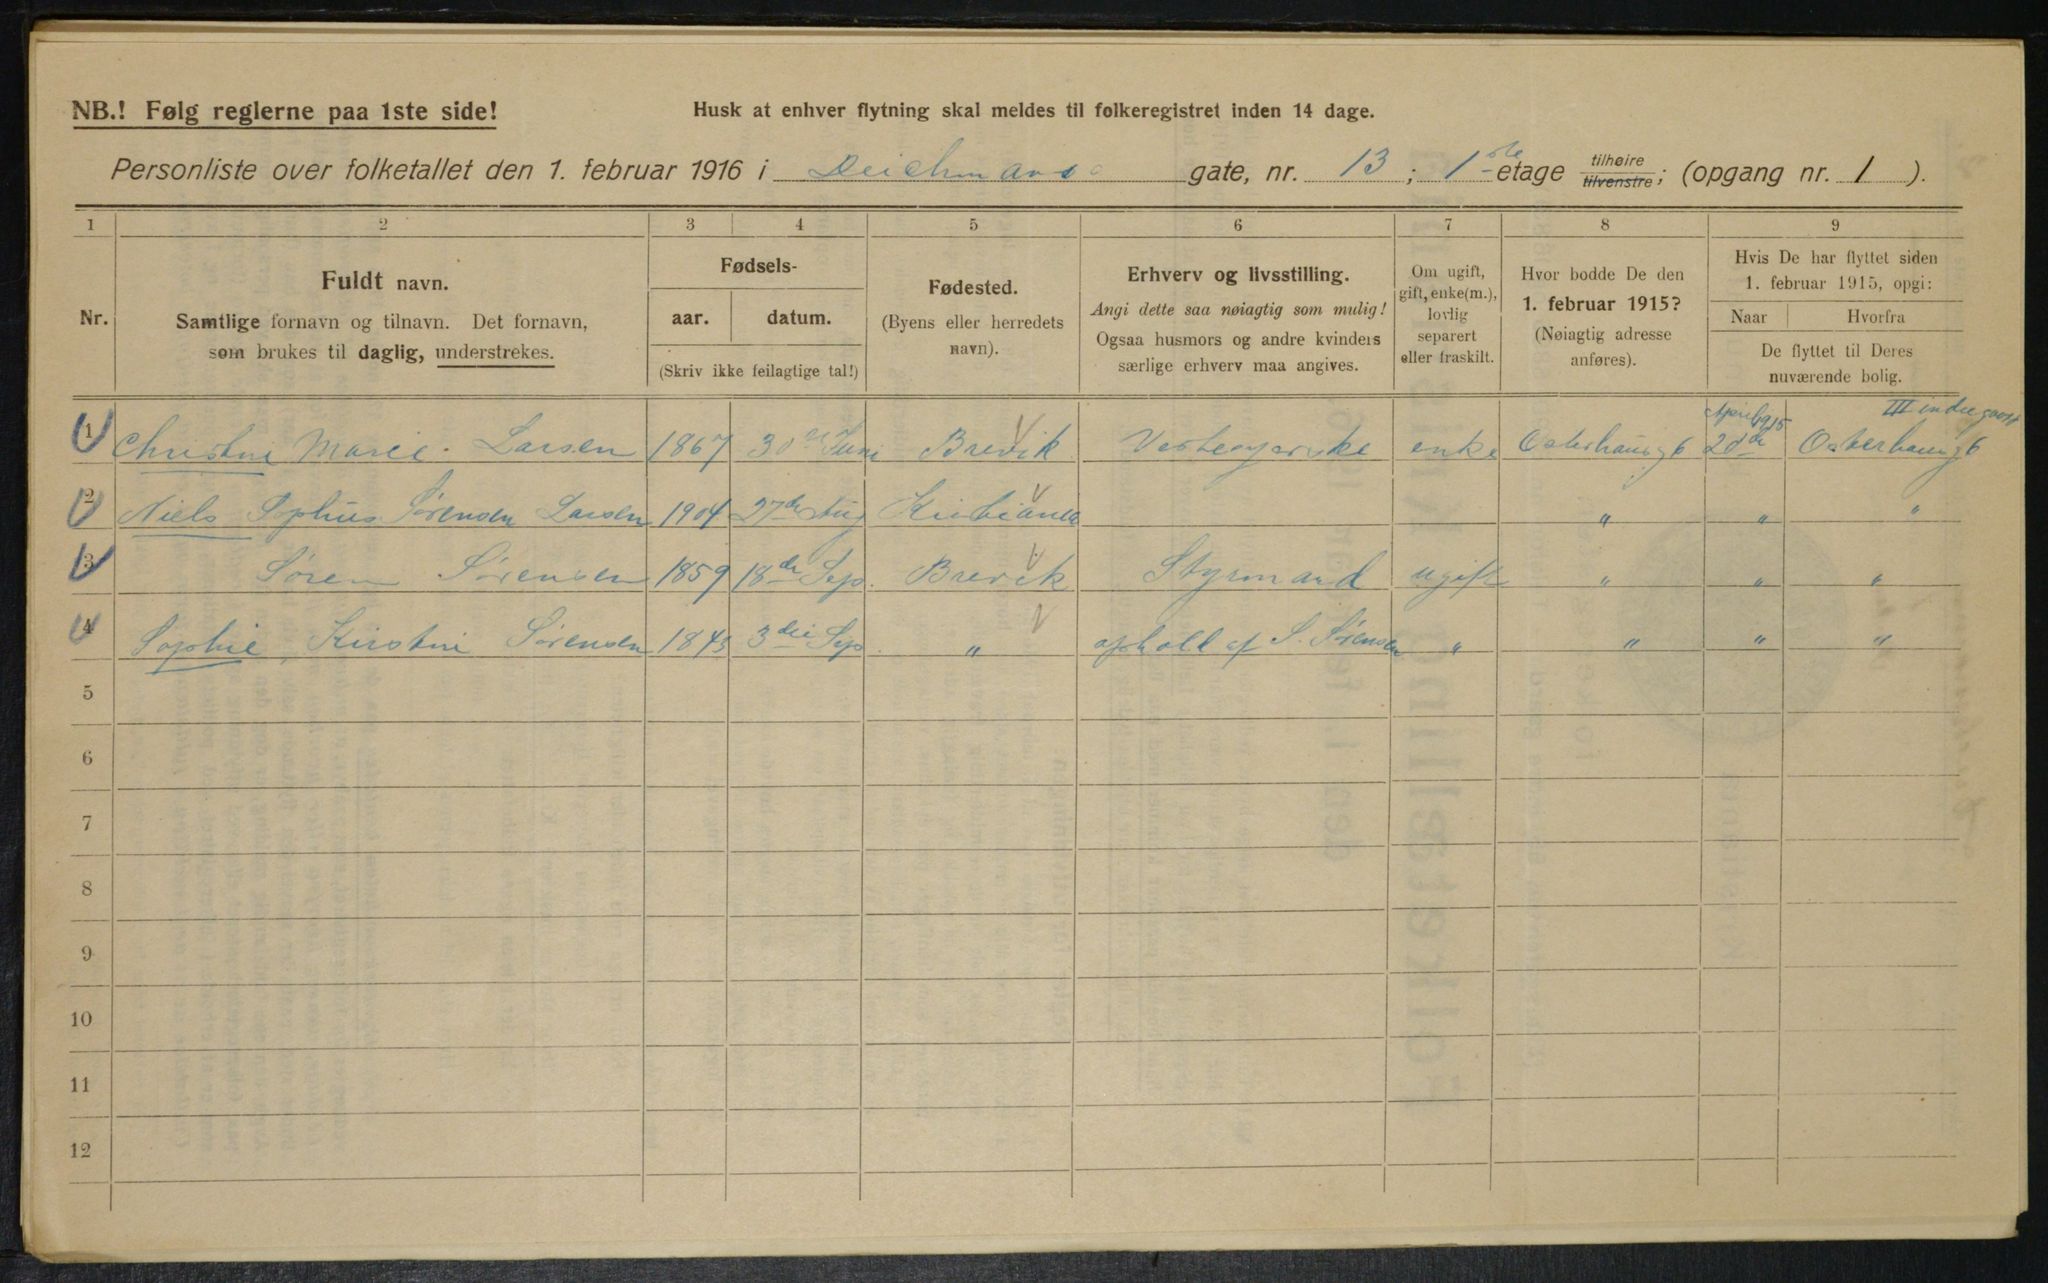 NB.! Følg reglerne paa 1ste side!
Husk at enhver flytning skal meldes til folkeregistret inden 14 dage.
Personliste over folketallet den 1. februar 1916 i Deichmans gate, nr. 13 ; 1ste etage tilhøire tilvenstre; (opgang nr. 1 ).
1 2 3 4 5 6 7 8 9
Nr.
Fuldt navn.
Samtlige fornavn og tilnavn. Det fornavn,
som brukes til daglig, understrekes.
Fødsels-
aar. datum.
(Skriv ikke feilagtige tal!)
Fødested.
(Byens eller herredets
navn).
Erhverv og livsstilling.
Angi dette saa nøiagtig som mulig!
Ogsaa husmors og andre kvinders
særlige erhverv maa angives.
Om ugift,
gift, enke(m.),
lovlig
separert
eller fraskilt.
Hvor bodde De den
1. februar 1915?
(Nøiagtig adresse
anføres).
Hvis De har flyttet siden
1. februar 1915, opgi:
Naar Hvorfra
De flyttet til Deres
nuværende bolig.
April 1915 III indregaard
1 Christini Marie Larsen 1867 30 Juni Brevik enke Osterhausg 6 20de Osterhausg 6
2 Niels Sophus Sørensen Larsen 1904 27de Aug Kristiania " " "
3 Søren Sørensen 1859 18de Sep. Brevik Styrmand ugift " " "
4 Sophie Kirstine Sørensen 3die Sep " ophold af S. Sørensen " " " "
5
6
7
8
9
10
11
12